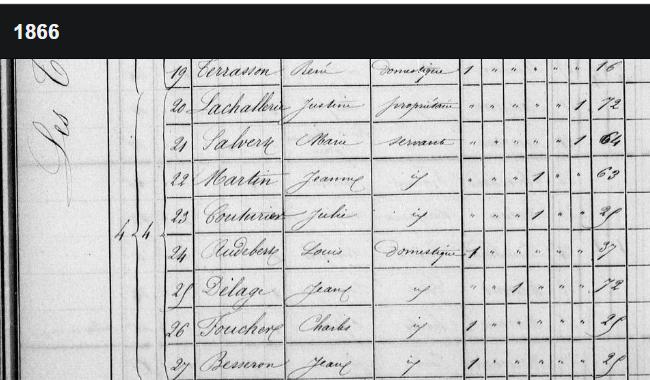 1866
Les
19 Terrasson René Domestique 1 " " " " " 16
20 Lachallerie Justine propriétaire " " " " " 1 72
21 Salverte Marie servante " " " " " 1 64
22 Martin Jeanne id " " " 1 " " 63
23 Couturier Julie id " " " 1 " " 25
4 4 24 Audebert Louis Domestique 1 " " " " " 37
25 Délage Jean id " " 1 " " " 72
26 Charles id 1 " " " " " 25
27 Besseron Jean id 1 " " " " " 25